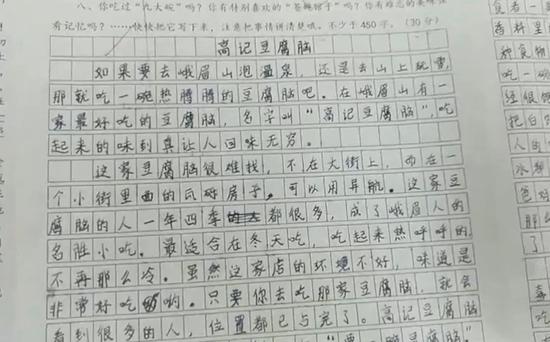 八、你吃过“九大碗”吗？你有特别喜欢的“苍蝇馆子”吗？你有难忘的美味佳
有记忆吗？……快快把它写下来，注意把事情讲清楚哦。不少于450字。（30分）
高记豆腐脑
如果要去峨眉山泡温泉，还是去山上玩雪，
那就吃一碗热腾腾的豆腐脑吧。在峨眉山有一
家最好吃的豆腐脑，名字叫“高记豆腐脑”，吃
起来的味到真让人回味无穷。
这家豆腐脑很难找，不在大街上，而在一
个小街里面的瓦砖房子。可以用导航。这家豆
腐脑的人一年四季都很多，成了峨眉人的
名胜小吃。最适合在冬天吃，吃起来热呼呼的，
不再那么冷。虽然这家店的环境不好，味道是
非常好吃的哟。只要你去吃那家豆腐脑，就会
看到很多的人，位置都已占完了。高记豆腐脑
食者一
香料里
种食物
吃一碗
经很饿
把白
人